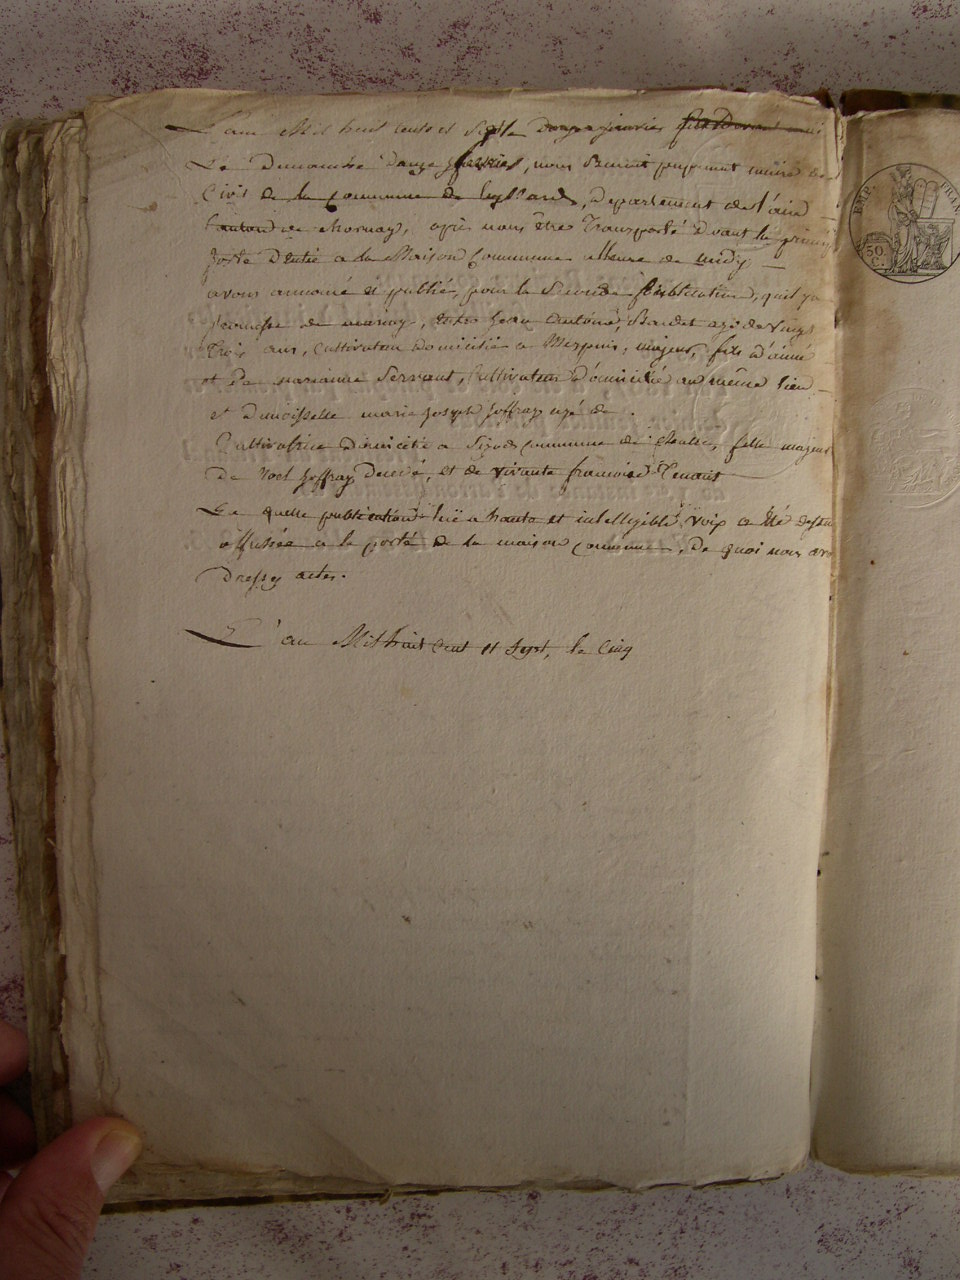 L'an Mil huit cents et Septe Donze janvier
Le Dimanche Donze janvier, nous Benoit maire de
Civis de la Commune de Lhuissard, Departement de l'aind
Canton de chornay, après nous être Transporté Dvant la princip
porte D'entée a la Maison Commune alleure de midy
avons annoncé et publié, pour la Seconde publication, quil ya
promesse de mariage, Entre Jean Antoine Bardet agé de vingt
Trois ans, Cultivateur Domicilié a Merpuis, majeur, fils d'aimé
et De marianne Servant, Cultivateur Domicilié au même lieu
et Dmoisselle marie Joseph Joffray agé de .
Cultivatrice Domiciliée a commune de , fille majeur
De noel Joffray Decedé, et de vivante francoise Tenant
La quelle publication luë a haute et intelligible voix a été desuit
affissée a la porté de la maison commune, De quoi nous avo
Dressez actes.
L'an Mil huit Cent et Sept, le Cinq
EMP. FRAN
50 C.